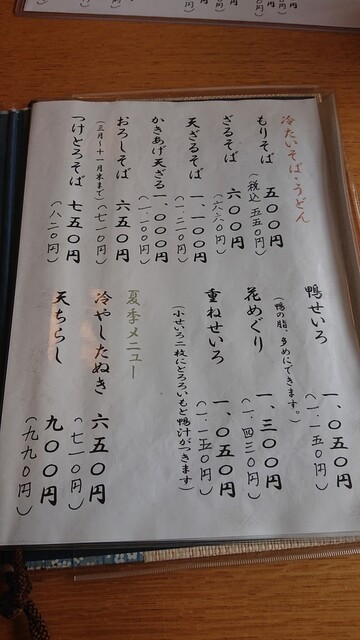 冷たいそば・うどん
もりそば 五〇〇円
(税込 五五〇円)
ざるそば 六〇〇円
(六六〇円)
天ざるそば 一、一〇〇円
(一、二一〇円)
かきあげ天ざる 一、〇〇〇円
(一、一〇〇円)
おろしそば 六五〇円
(三月〜十一月末まで)(七一〇円)
つけとろそば 七五〇円
(八二〇円)
鴨せいろ 一、〇五〇円
(鴨の脂、多めにできます。)(一、一五〇円)
花めぐり 一、三〇〇円
(一、四三〇円)
重ねせいろ 一、〇五〇円
(一、一五〇円)
(小せいろ二枚にとろろいもと鴨汁がつきます)
夏季メニュー
冷やしたぬき 六五〇円
(七一〇円)
天ちらし 九〇〇円
(九九〇円)